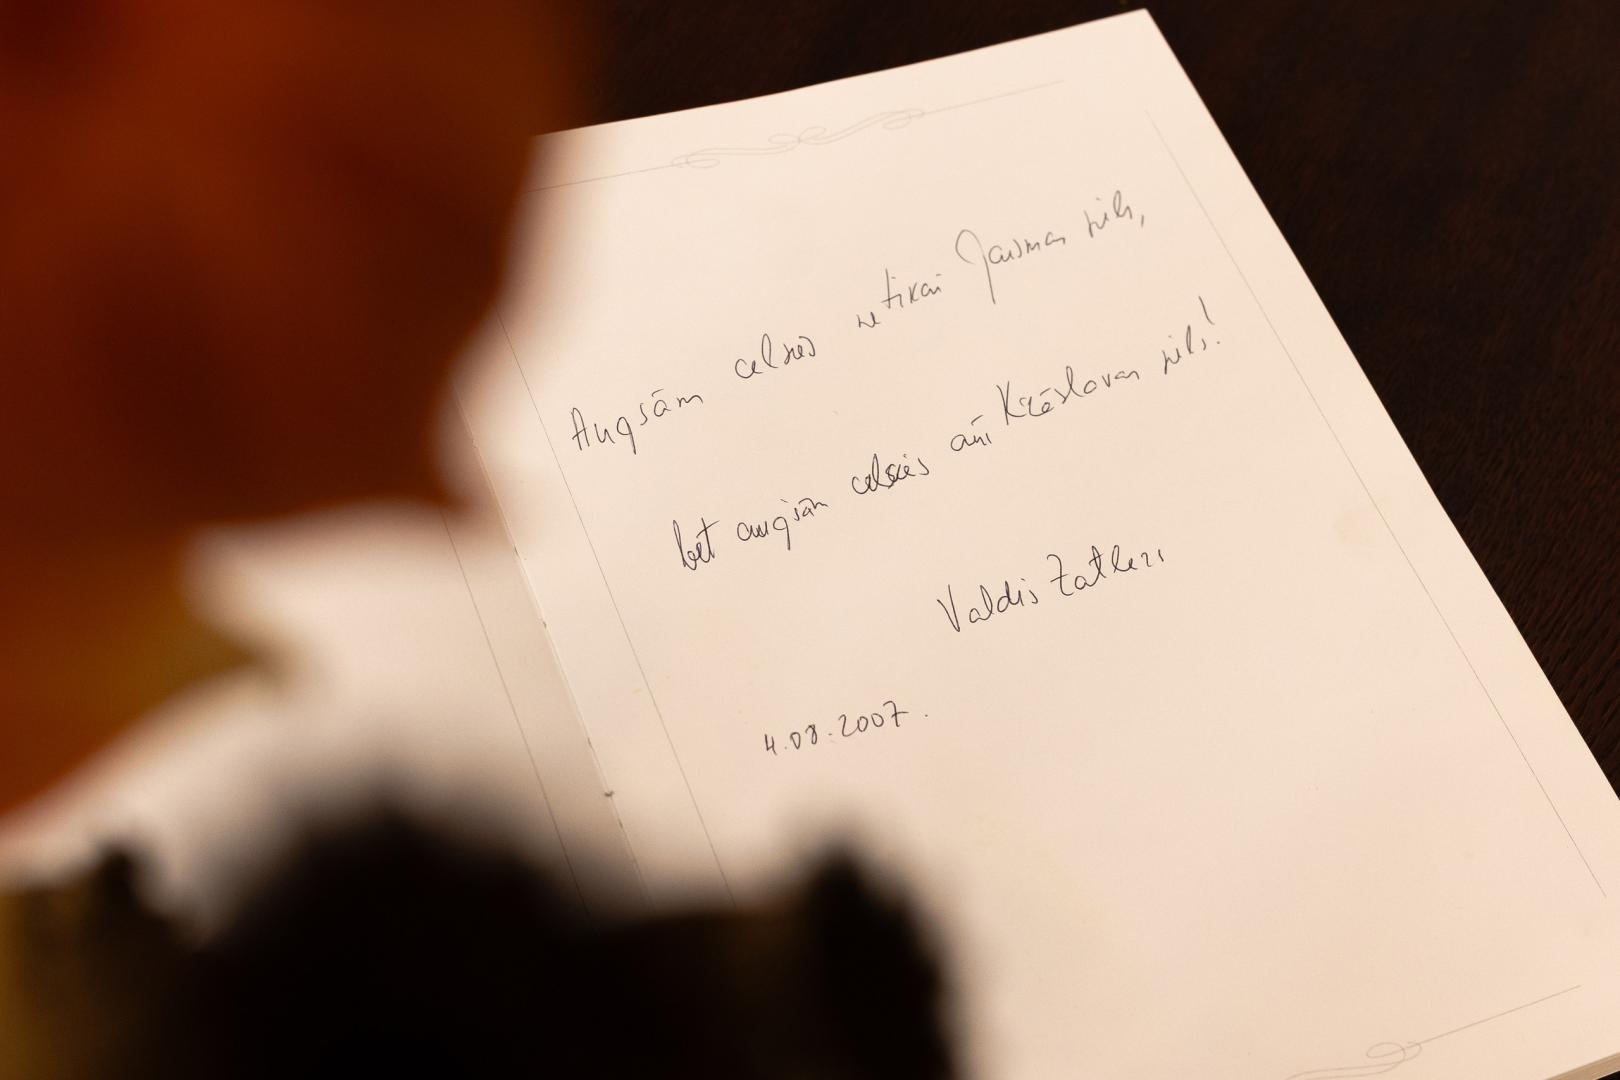 Augšām celsies ne tikai Gaismas pils,
bet augšām celsies arī Krāslavas pils!
Valdis Zatlers
4.08.2007.